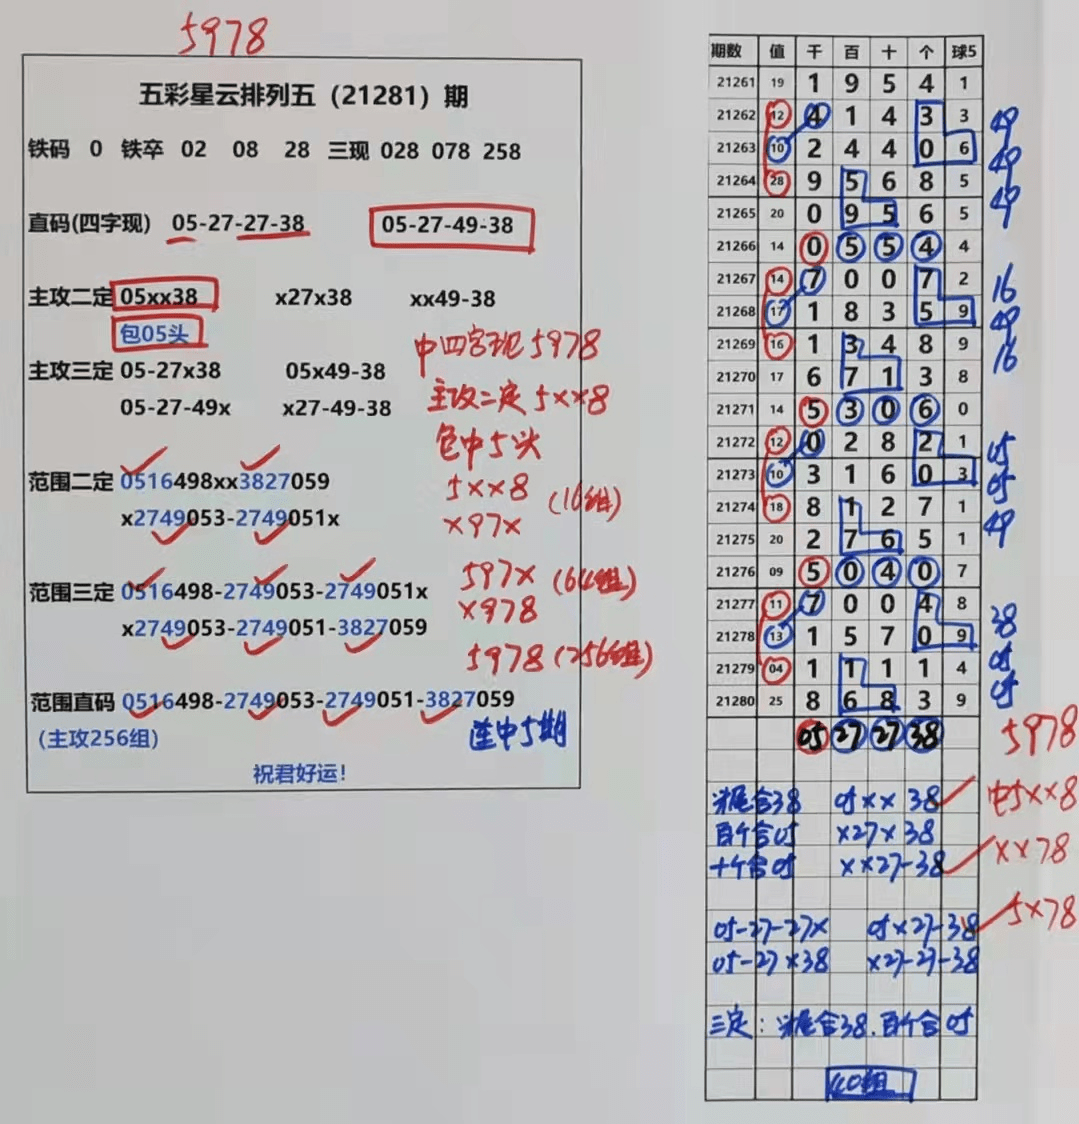 5978
五彩星云排列五（21281）期
铁码 0 铁卒 02 08 28 三现 028 078 258
直码(四字现) 05-27-27-38 05-27-49-38
主攻二定 05xx38 x27x38 xx49-38
包05头
中四字现5978
主攻三定 05-27x38 05x49-38
主攻二定5xx8
05-27-49x x27-49-38
包中5头
范围二定 0516498xx3827059
5xx8 (16组)
x2749053-2749051x
x97x
范围三定 0516498-2749053-2749051x
597x (64组)
x2749053-2749051-3827059
x978
5978(256组)
范围直码 0516498-2749053-2749051-3827059
(主攻256组)
连中5期
祝君好运!
期数 值 千 百 十 个 球5
21261 19 1 9 5 4 1
21262 12 4 1 4 3 3 49
21263 10 2 4 4 0 6 49
21264 28 9 5 6 8 5 49
21265 20 0 9 5 6 5
21266 14 0 5 5 4 4
21267 14 7 0 0 7 2 16
21268 17 1 8 3 5 9 49
21269 16 1 3 4 8 9 16
21270 17 6 7 1 3 8
21271 14 5 3 0 6 0
21272 12 0 2 8 2 1 05
21273 10 3 1 6 0 3 05
21274 18 8 1 2 7 1 49
21275 20 2 7 6 5 1
21276 09 5 0 4 0 7
21277 11 7 0 0 4 8 38
21278 13 1 5 7 0 9 05
21279 04 1 1 1 1 4 05
21280 25 8 6 8 3 9
05 27 27 38 5978
头尾合38 05xx 38 中5xx8
百个合05 x27x38
十个合05 xx27-38 xx78
05-27-27x 05x27-38 5x78
05-27x38 x27-27-38
三定：头尾合38.百个合05
40组